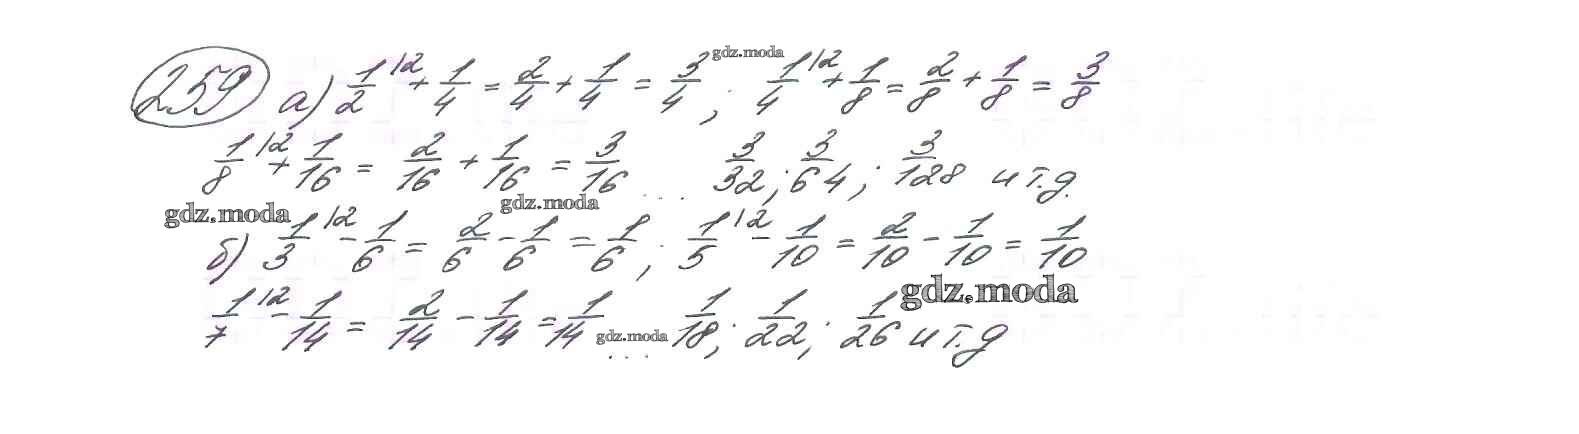 259 а) 1/2 |2 + 1/4 = 2/4 + 1/4 = 3/4 ; 1/4 |2 + 1/8 = 2/8 + 1/8 = 3/8
gdz.moda
1/8 |2 + 1/16 = 2/16 + 1/16 = 3/16 ... 3/32 ; 3/64 ; 3/128 и т.д.
gdz.moda gdz.moda
б) 1/3 |2 - 1/6 = 2/6 - 1/6 = 1/6 ; 1/5 |2 - 1/10 = 2/10 - 1/10 = 1/10
gdz.moda
1/7 |2 - 1/14 = 2/14 - 1/14 = 1/14 ... 1/18 ; 1/22 ; 1/26 и т.д
gdz.moda